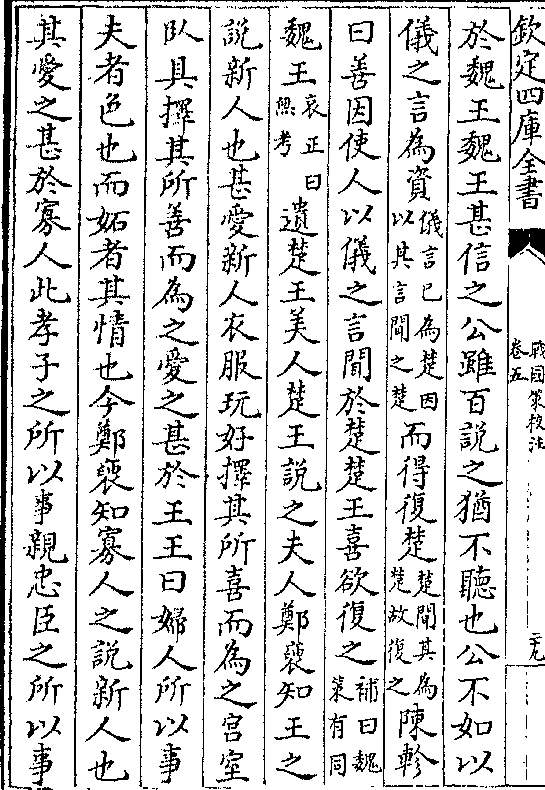 欽定四庫全書
戰國策校注
卷五
二十九
於魏王魏王甚信之公雖百說之猶不聽也公不如以
儀之言為資儀言已為楚因以其言聞之楚而得復楚楚聞其為楚故復之陳軫
曰善因使人以儀之言聞於楚楚王喜欲復之補曰魏策有同
魏王哀正曰無考遺楚王美人楚王說之夫人鄭褎知王之
說新人也甚愛新人衣服玩好擇其所喜而為之宫室
臥具擇其所善而為之愛之甚於王王曰婦人所以事
夫者色也而妬者其情也今鄭褎知寡人之說新人也
其愛之甚於寡人此孝子之所以事親忠臣之所以事